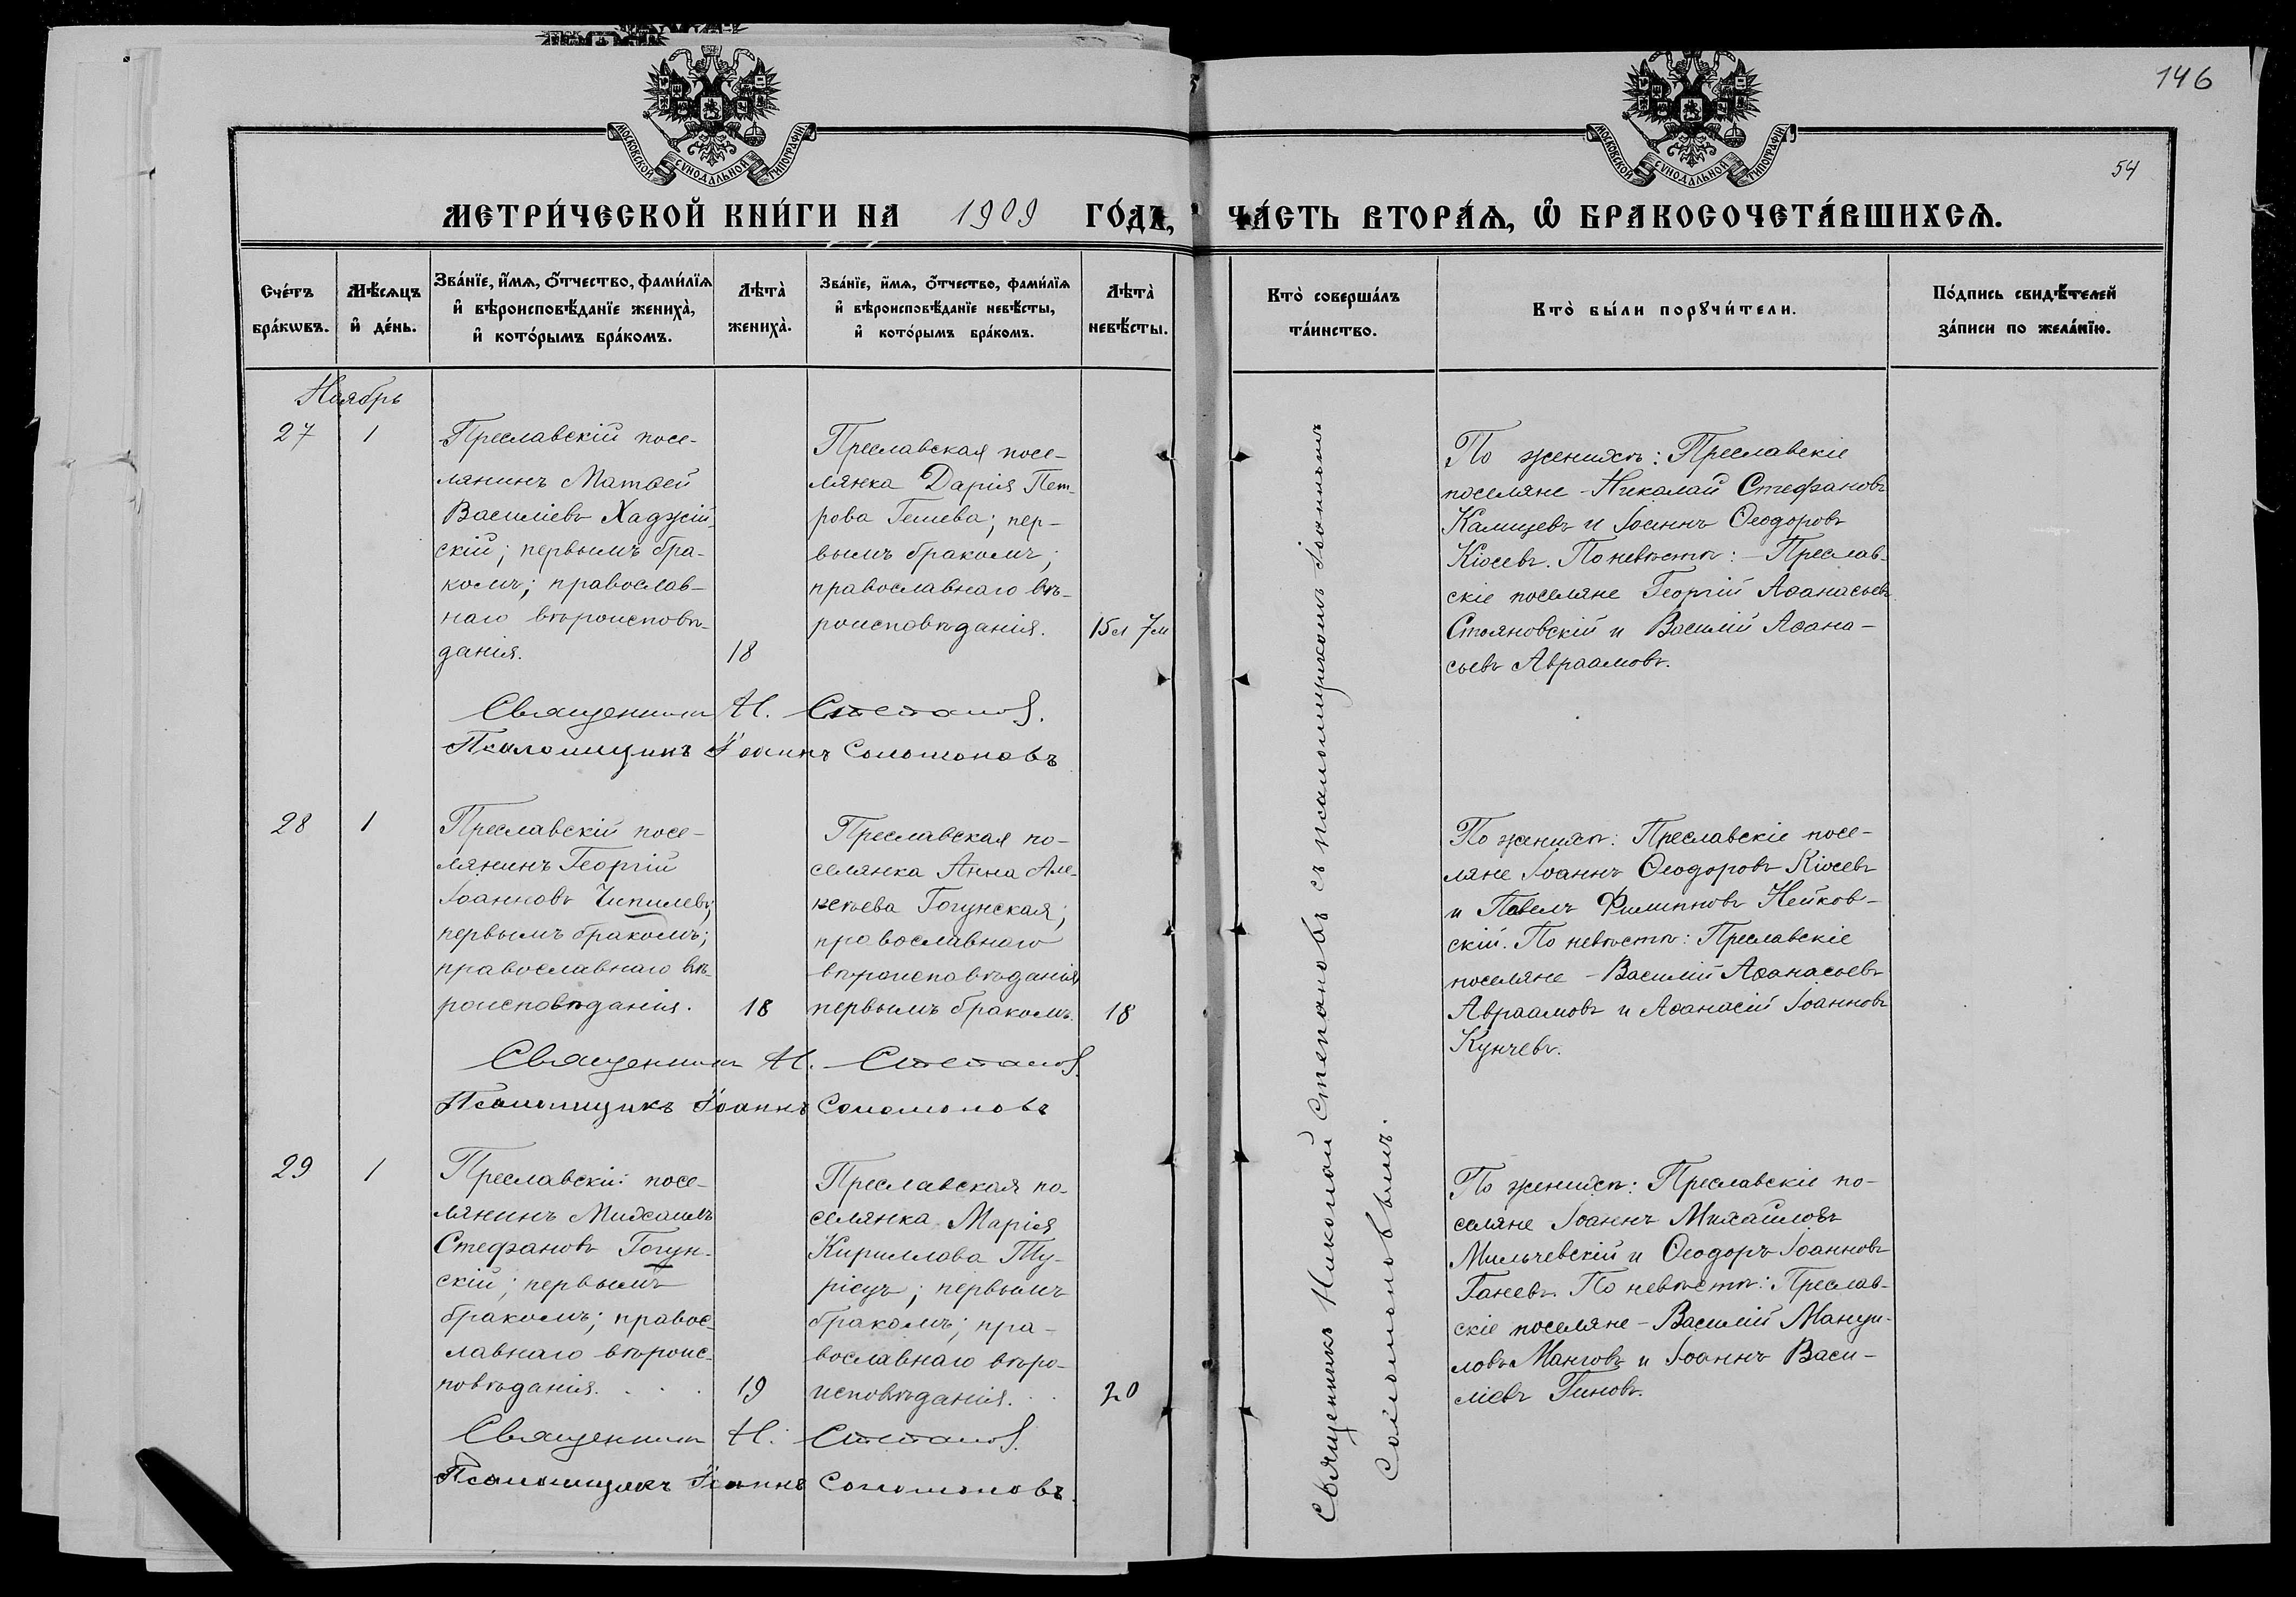 146
54
МОСКОВСКОЙ СѴНОДАЛЬНОЙ ТИПОГРАФІИ
МОСКОВСКОЙ СѴНОДАЛЬНОЙ ТИПОГРАФІИ
МЕТРИ́ЧЕСКОЙ КНИ́ГИ НА 1909 ГО́ДЪ, ЧА́СТЬ ВТОРА́Ѧ, Ѽ БРАКОСОЧЕТА́ВШИХСѦ.
Сче́тъ
бра́кѡвъ.
Мѣ́сѧцъ
и҆ де́нь.
Зва́нїе, и҆́мѧ, ѻ҆́тчество, фами́лїѧ
и҆ вѣроисповѣ́данїе жениха̀,
и҆ кото́рымъ бра́комъ.
Лѣта̀
жениха̀.
Зва́нїе, и҆́мѧ, ѻ҆́тчество, фами́лїѧ
и҆ вѣроисповѣ́данїе невѣ́сты,
и҆ кото́рымъ бра́комъ.
Лѣта̀
невѣ́сты.
Кто̀ соверша́лъ
та́инство.
Кто̀ бы́ли порꙋчи́тели.
По́дпись свидѣ́телей
за́писи по жела́нїю.
Ноябрь
27
1
Преславскій посе-
лянинъ Матѳей
Василіевъ Хаджій-
скій; первымъ бра-
комъ; православ-
наго вѣроисповѣ-
данія.
18
Преславская посе-
лянка Дарія Пет-
рова Гешева; пер-
вымъ бракомъ;
православнаго вѣ-
роисповѣданія.
15 л 7 м
По женихѣ: Преславскіе
поселяне - Николай Стефановъ
Камищевъ и Іоаннъ Ѳеодоровъ
Кіосевъ. По невѣстѣ: - Преслав-
скіе поселяне Георгій Аѳанасьевъ
Стояновскій и Василій Аѳана-
сьевъ Авраамовъ.
Священникъ Н. Степановъ.
Псаломщикъ Іоаннъ Соломоновъ
28
1
Преславскій посе-
лянинъ Георгій
Іоанновъ Чипилевъ;
первымъ бракомъ;
православнаго вѣ-
роисповѣданія.
18
Преславская по-
селянка Анна Але-
ксѣева Гогунская;
православнаго
вѣроисповѣданія
первымъ бракомъ.
18
По женихѣ: Преславскіе посе-
ляне Іоаннъ Ѳеодоровъ Кіосевъ
и Павелъ Филипповъ Нейков-
скій. По невѣстѣ: Преславскіе
поселяне - Василій Аѳанасьевъ
Авраамовъ и Аѳанасій Іоанновъ
Кунчевъ.
Священникъ Н. Степановъ.
Псаломщикъ Іоаннъ Соломоновъ
29
1
Преславскій посе-
лянинъ Михаилъ
Стефановъ Гогун-
скій; первымъ
бракомъ; правос-
лавнаго вѣроис-
повѣданія. . . .
19
Преславская по-
селянка Марія
Кириллова Ту-
ріецъ; первымъ
бракомъ; пра-
вославнаго вѣро-
исповѣданія. . .
20
По женихѣ: Преславскіе по-
селяне Іоаннъ Михайловъ
Мильчевскій и Ѳеодоръ Іоанновъ
Ганевъ. По невѣстѣ: Преслав-
скіе поселяне - Василій Мануи-
ловъ Манговъ и Іоаннъ Васи-
ліевъ Гиновъ.
Священникъ Н. Степановъ.
Псаломщикъ Іоаннъ Соломоновъ.
Священникъ Николай Степановъ съ псаломщикомъ Іоанномъ
Соломоновымъ.